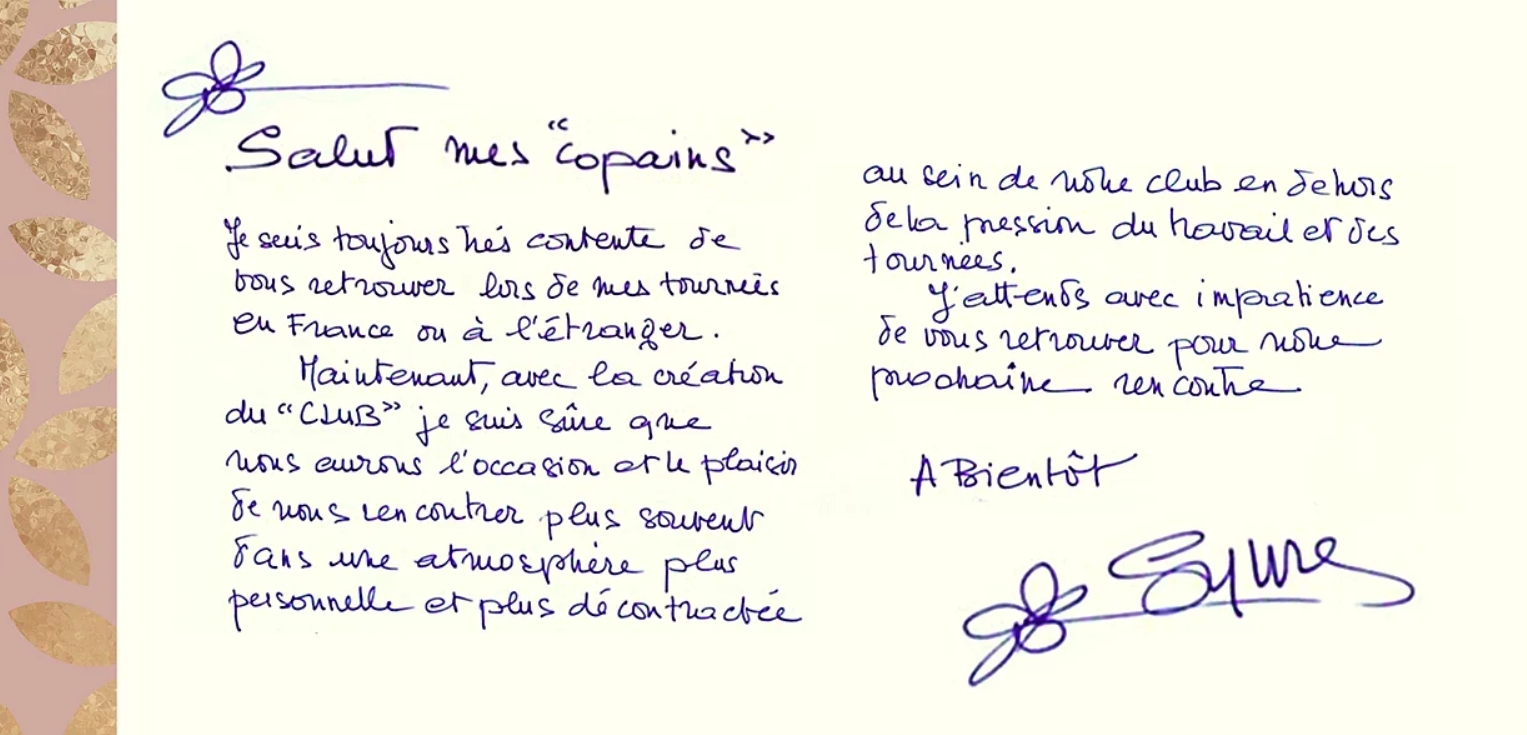 Salut mes “copains”
Je suis toujours très contente de
vous retrouver lors de mes tournées
en France ou à l'étranger.
Maintenant, avec la création
du “CLUB” je suis sûre que
nous aurons l'occasion et le plaisir
de nous rencontrer plus souvent
dans une atmosphère plus
personnelle et plus décontractée
au sein de notre club en dehors
de la pression du travail et des
tournées.
J'attends avec impatience
de vous retrouver pour notre
prochaine rencontre
A Bientôt